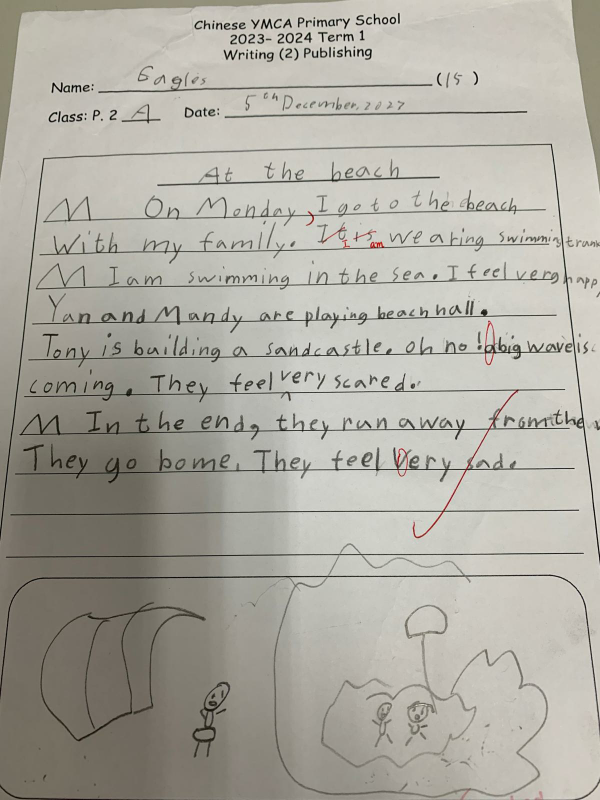 Chinese YMCA Primary School
2023- 2024 Term 1
Writing (2) Publishing
Name: Eagles (15)
Class: P. 2 A Date: 5th December, 2027
At the beach
M On Monday, I go to the beach
With my family. It is I am wearing swimming trunk
M I am swimming in the sea. I feel very happy
Yan and Mandy are playing beach hall.
Tony is building a sandcastle. Oh no! a big wave is
coming. They feel very scared.
M In the end, they run away from the
They go bome. They feel very sad.